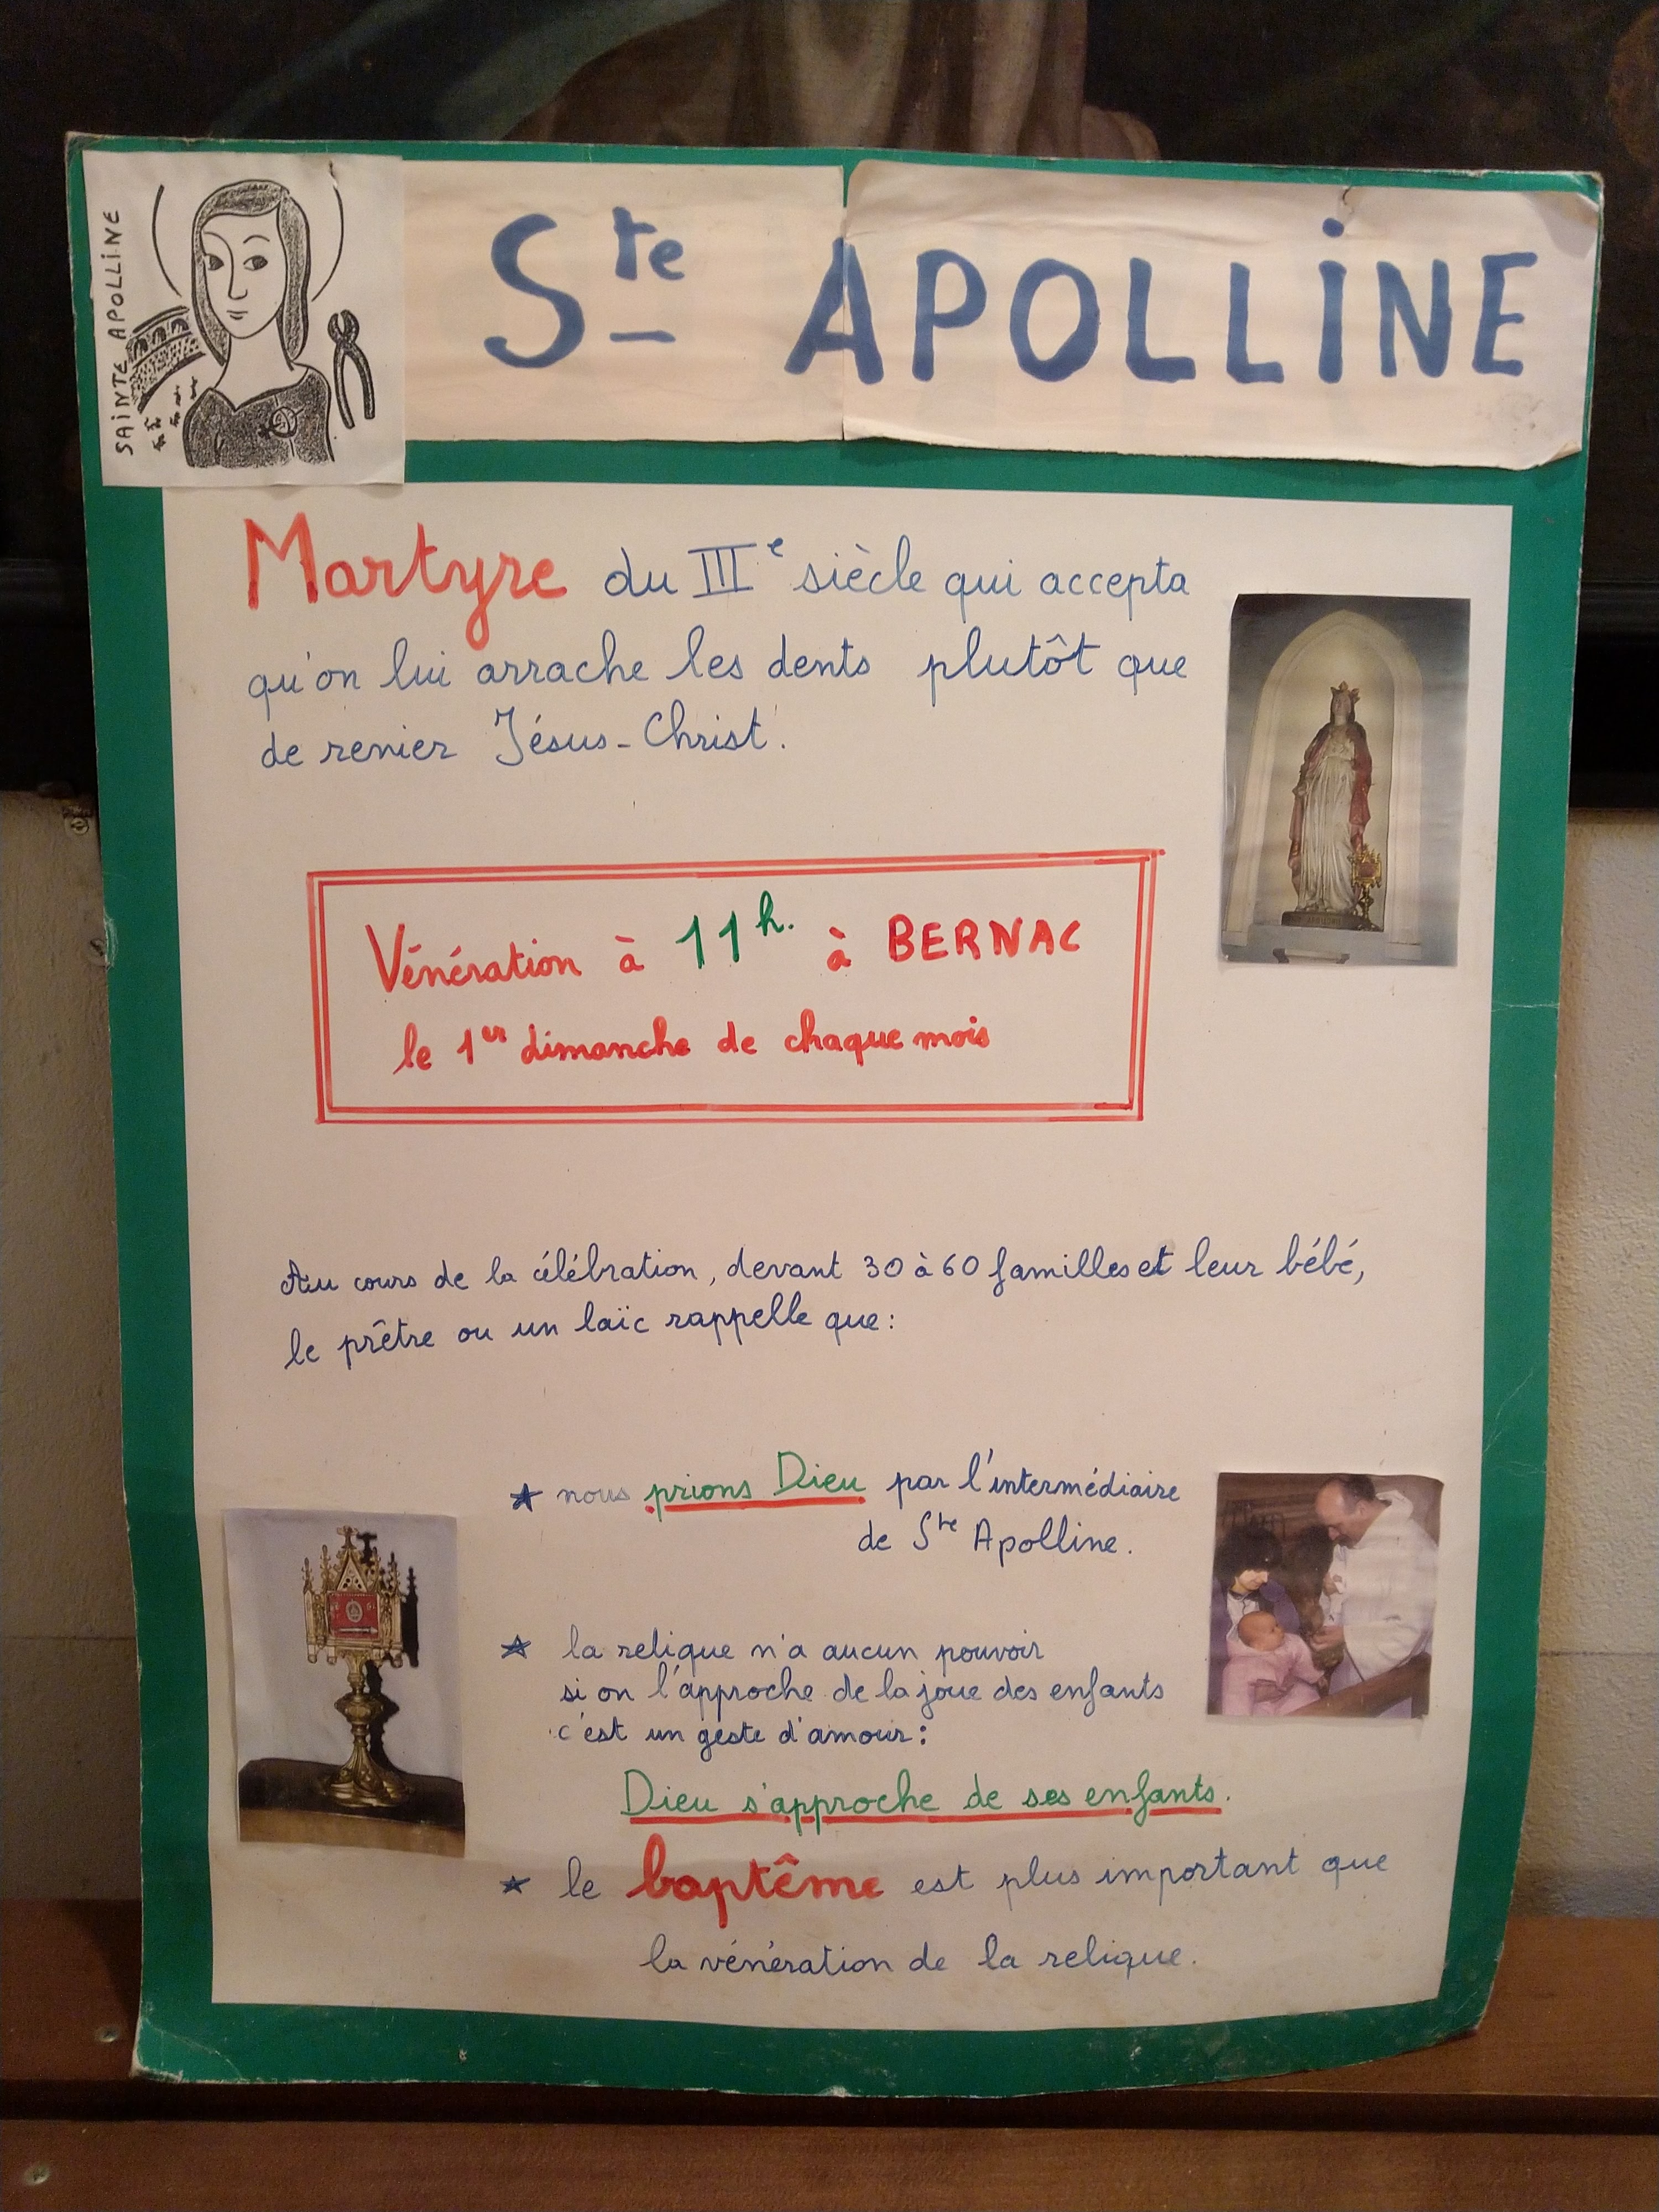 SAINTE APOLLINE
Ste APOLLINE
Martyre du IIIe siècle qui accepta
qu'on lui arrache les dents plutôt que
de renier Jésus-Christ.
Vénération à 11h. à BERNAC
le 1er dimanche de chaque mois
Au cours de la célébration, devant 30 à 60 familles et leur bébé,
le prêtre ou un laïc rappelle que :
★ nous prions Dieu par l'intermédiaire
de Ste Apolline.
★ la relique n'a aucun pouvoir
si on l'approche de la joue des enfants
c'est un geste d'amour :
Dieu s'approche de ses enfants.
★ le baptême est plus important que
la vénération de la relique.